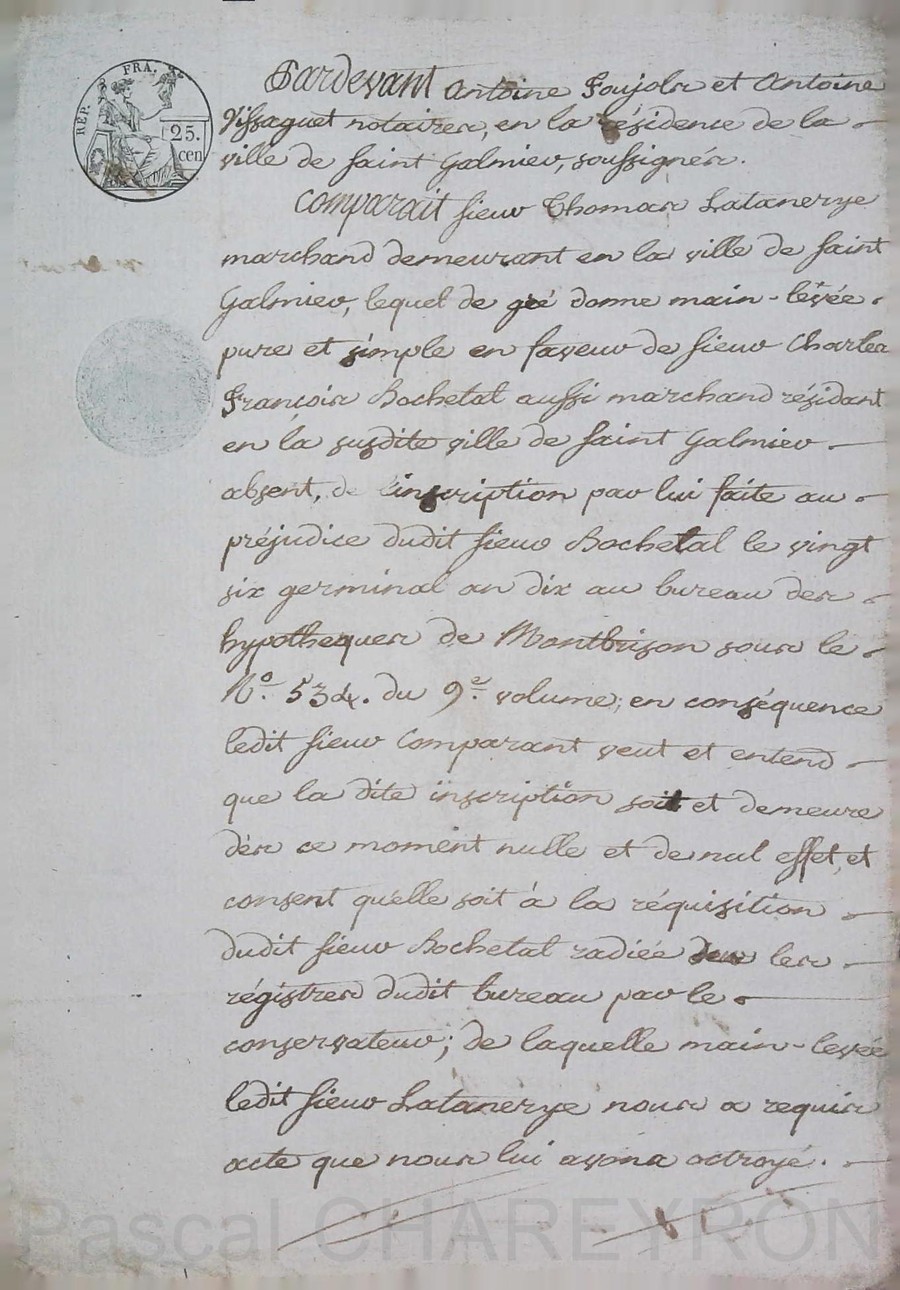 REP. FRA.
25.
cen
Pardevant Antoine Poujola et Antoine
Vissaguet notaires, en la résidence de la
ville de saint Galmier, soussignés.
Comparait sieur Thomas Latanerye
marchand demeurant en la ville de saint
Galmier, lequel de gré donne main-levée
pure et simple en faveur de sieur Charles
François Rochetal aussi marchand résidant
en la susdite ville de saint Galmier
absent, de l'inscription par lui faite au
préjudice dudit sieur Rochetal le vingt
six germinal an dix au bureau des
hypotheques de Montbrison sous le
N.º 534. du 9.e volume; en conséquence
ledit sieur Comparant veut et entend
que la dite inscription soit et demeure
dès ce moment nulle et de nul effet, et
consent qu'elle soit à la réquisition
dudit sieur Rochetal radiée les
régistres dudit bureau par le
conservateur; de laquelle main-levée
ledit sieur Latanerye nous a requis
acte que nous lui avons octroyé.
Pascal CHAREYRON